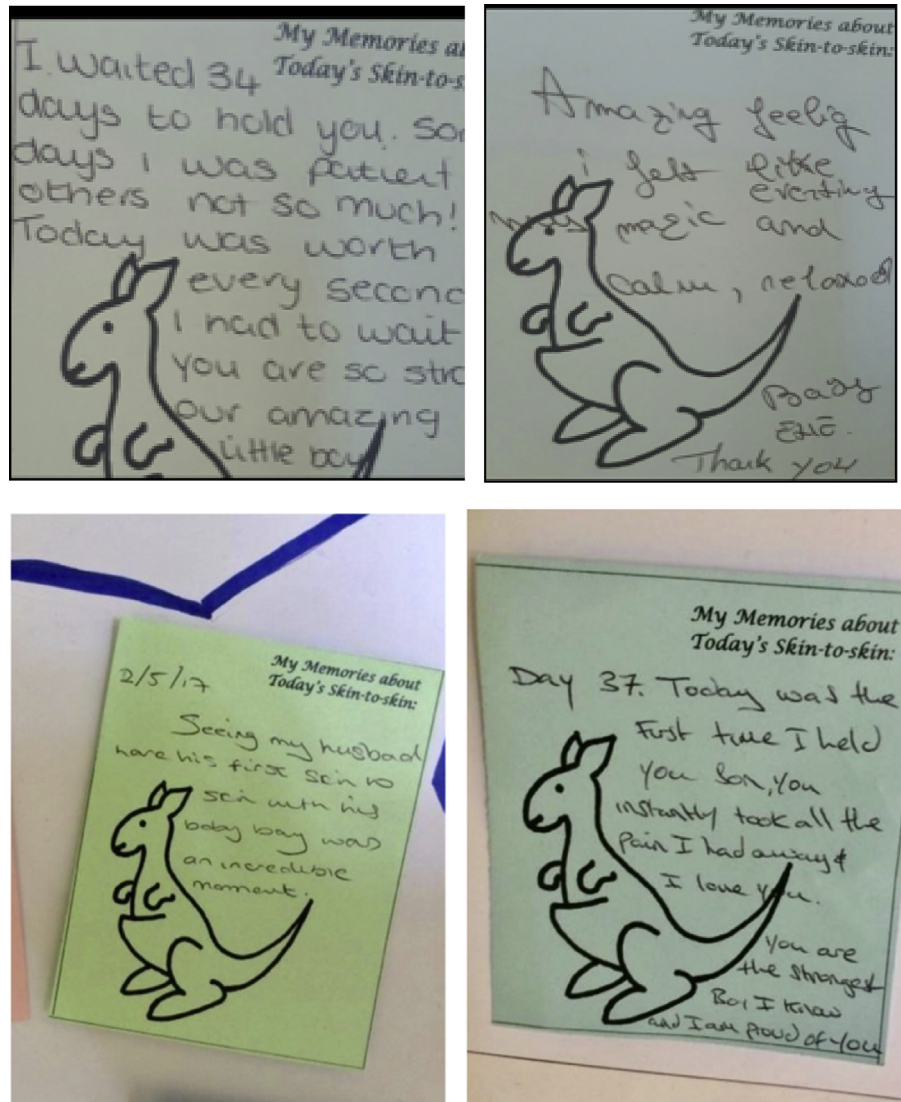 My Memories a
Today's Skin-to-s
I waited 34
days to hold you. So
days i was patient
others not so much!
Today was worth
every second
I had to wait
you are so stro
our amazing
little boy
My Memories about
Today's Skin-to-skin:
Amazing feelig
i felt like
everting
magic and
calm, relaxed
Baby
Thank you
My Memories about
Today's Skin-to-skin:
2/5/17
Seeing my husbad
have his first skin to
skin with his
baby boy was
an incredible
moment.
My Memories about
Today's Skin-to-skin:
Day 37. Today was the
First time I held
you Son, you
instantly took all the
pain I had away &
I love you.
You are
the strongest
Boy I Know
and I am proud of you